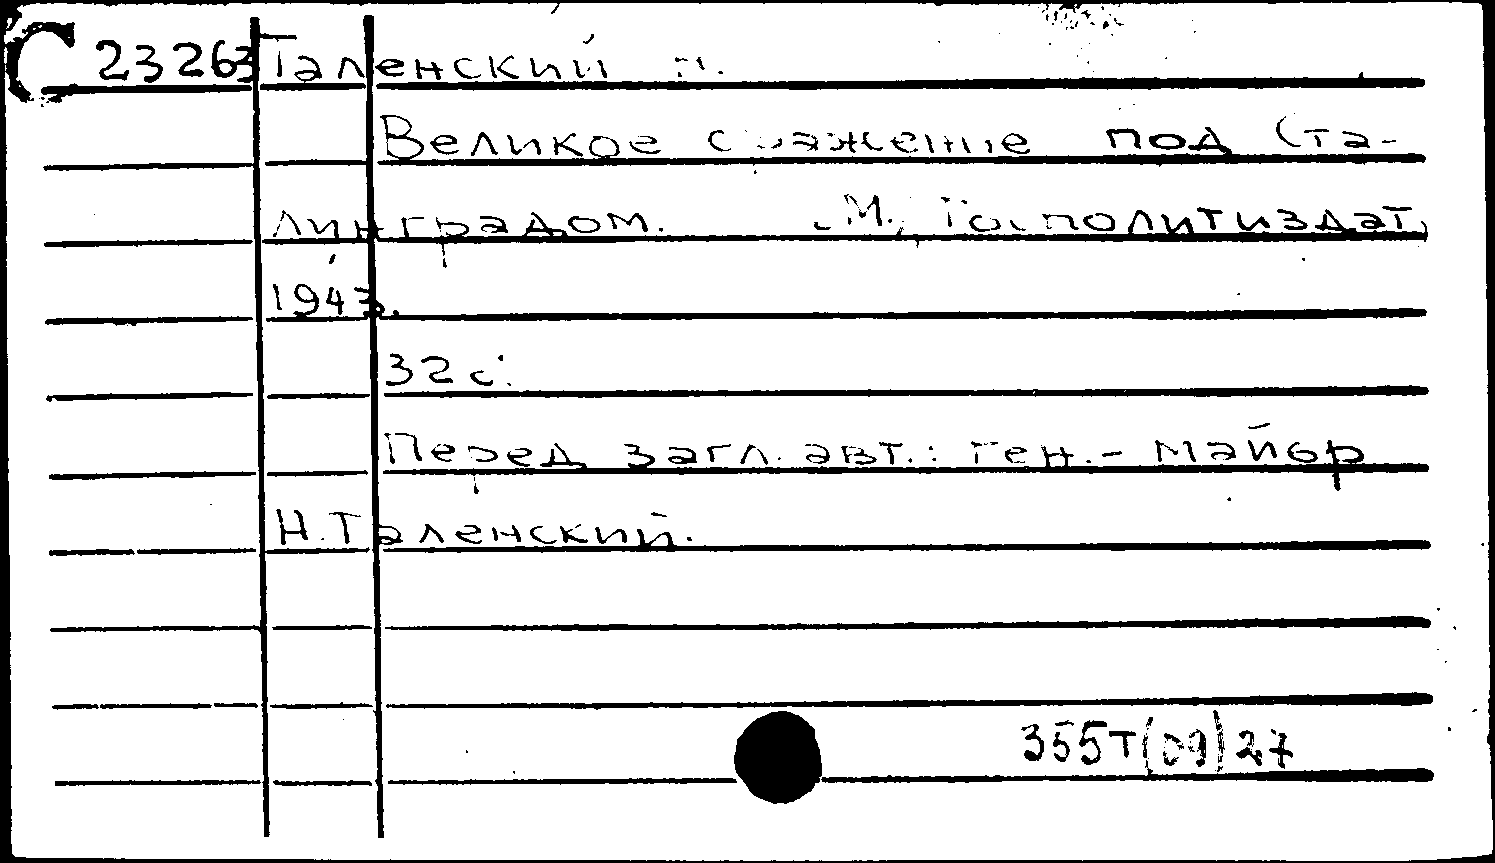 С 23263 Таленский Н.
Великое сражение под Ста-
линградом. М., Госполитиздат,
1943.
32 с.
Перед загл. авт.: ген.- майор
Н. Таленский.
355т(09)27